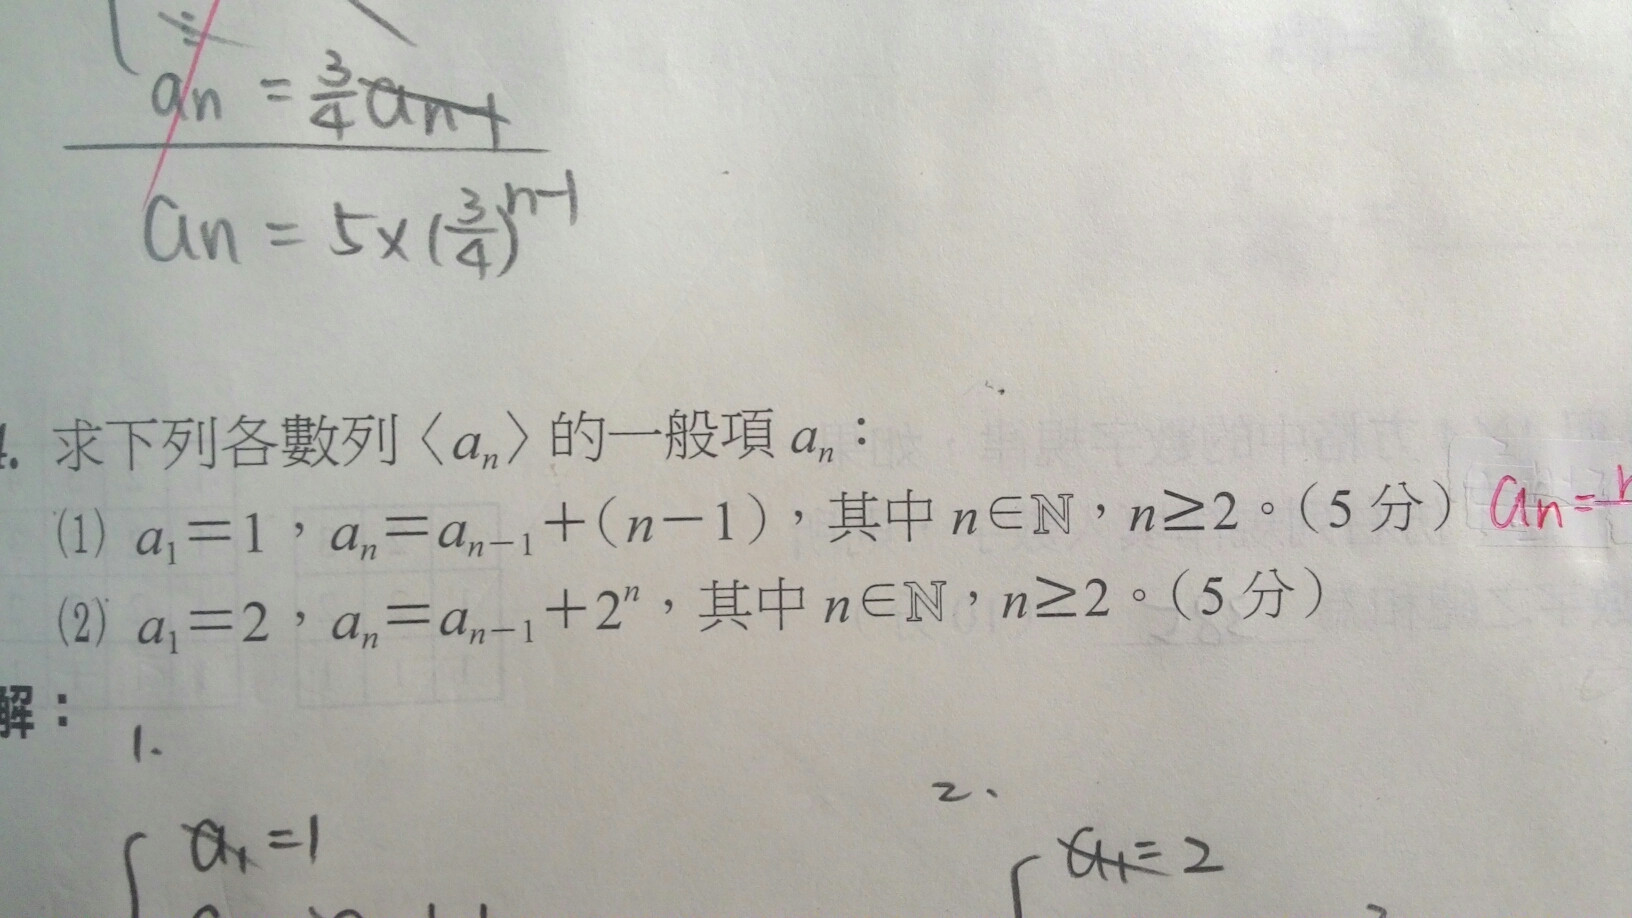 aₙ = 3/4 aₙ₋₁
aₙ = 5×(3/4)ⁿ⁻¹
求下列各數列〈aₙ〉的一般項 aₙ：
⑴ a₁＝1，aₙ＝aₙ₋₁＋(n－1)，其中 n∈ℕ，n≥2。(5 分) aₙ=
⑵ a₁＝2，aₙ＝aₙ₋₁＋2ⁿ，其中 n∈ℕ，n≥2。(5 分)
解：
1.
2、
a₁ =1
a₁= 2